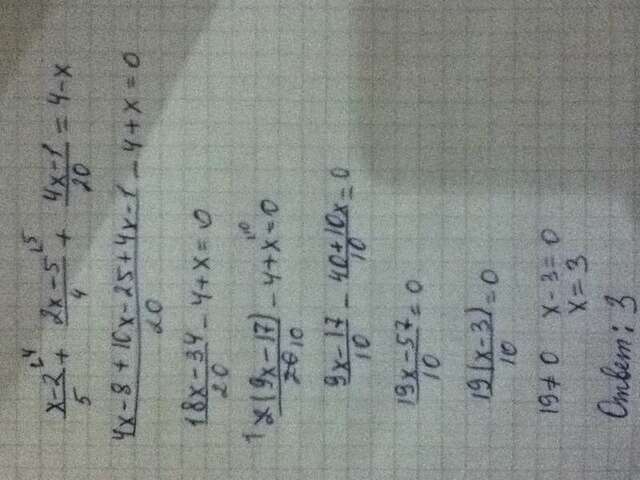 (x-2)/5 ⌞4 + (2x-5)/4 ⌞5 + (4x-1)/20 = 4-x
(4x-8+10x-25+4x-1)/20 -4+x=0
(18x-34)/20 -4+x=0
1 2(9x-17)/20 10 -4+x ⌞10 =0
(9x-17)/10 - (40+10x)/10 =0
(19x-57)/10 =0
19(x-3)/10 =0
19≠0 x-3=0
x=3
Ответ: 3